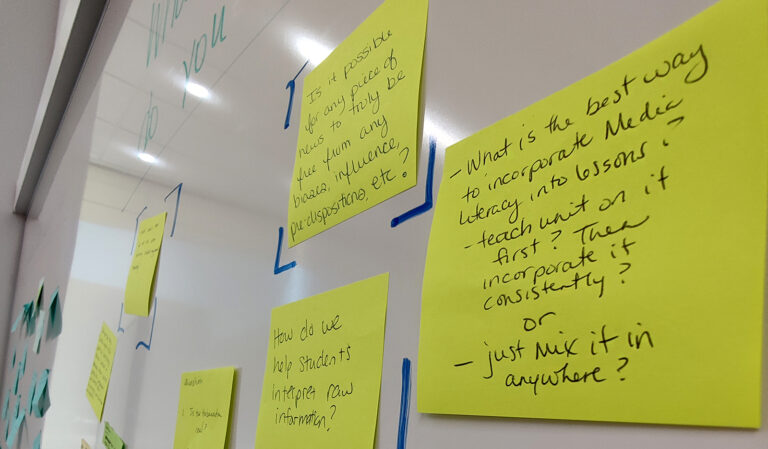 do you
Is it possible
for any piece of
news to truly be
free from any
biases, influence,
pre-dispositions, etc.?
- What is the best way
to incorporate Media
Literacy into lessons?
- teach unit on it
first? Then
incorporate it
consistently?
or
- just mix it in
anywhere?
How do we
help students
interpret raw
information?